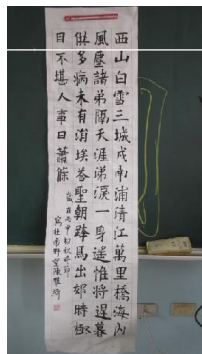 西山白雪三城戍南浦清江萬里橋海內
風塵諸弟隔天涯涕淚一身遙惟將遲暮
供多病未有涓埃答聖朝跨馬出郊時極
目不堪人事日蕭條
歲在丙申初秋
寫杜甫野望陳雅